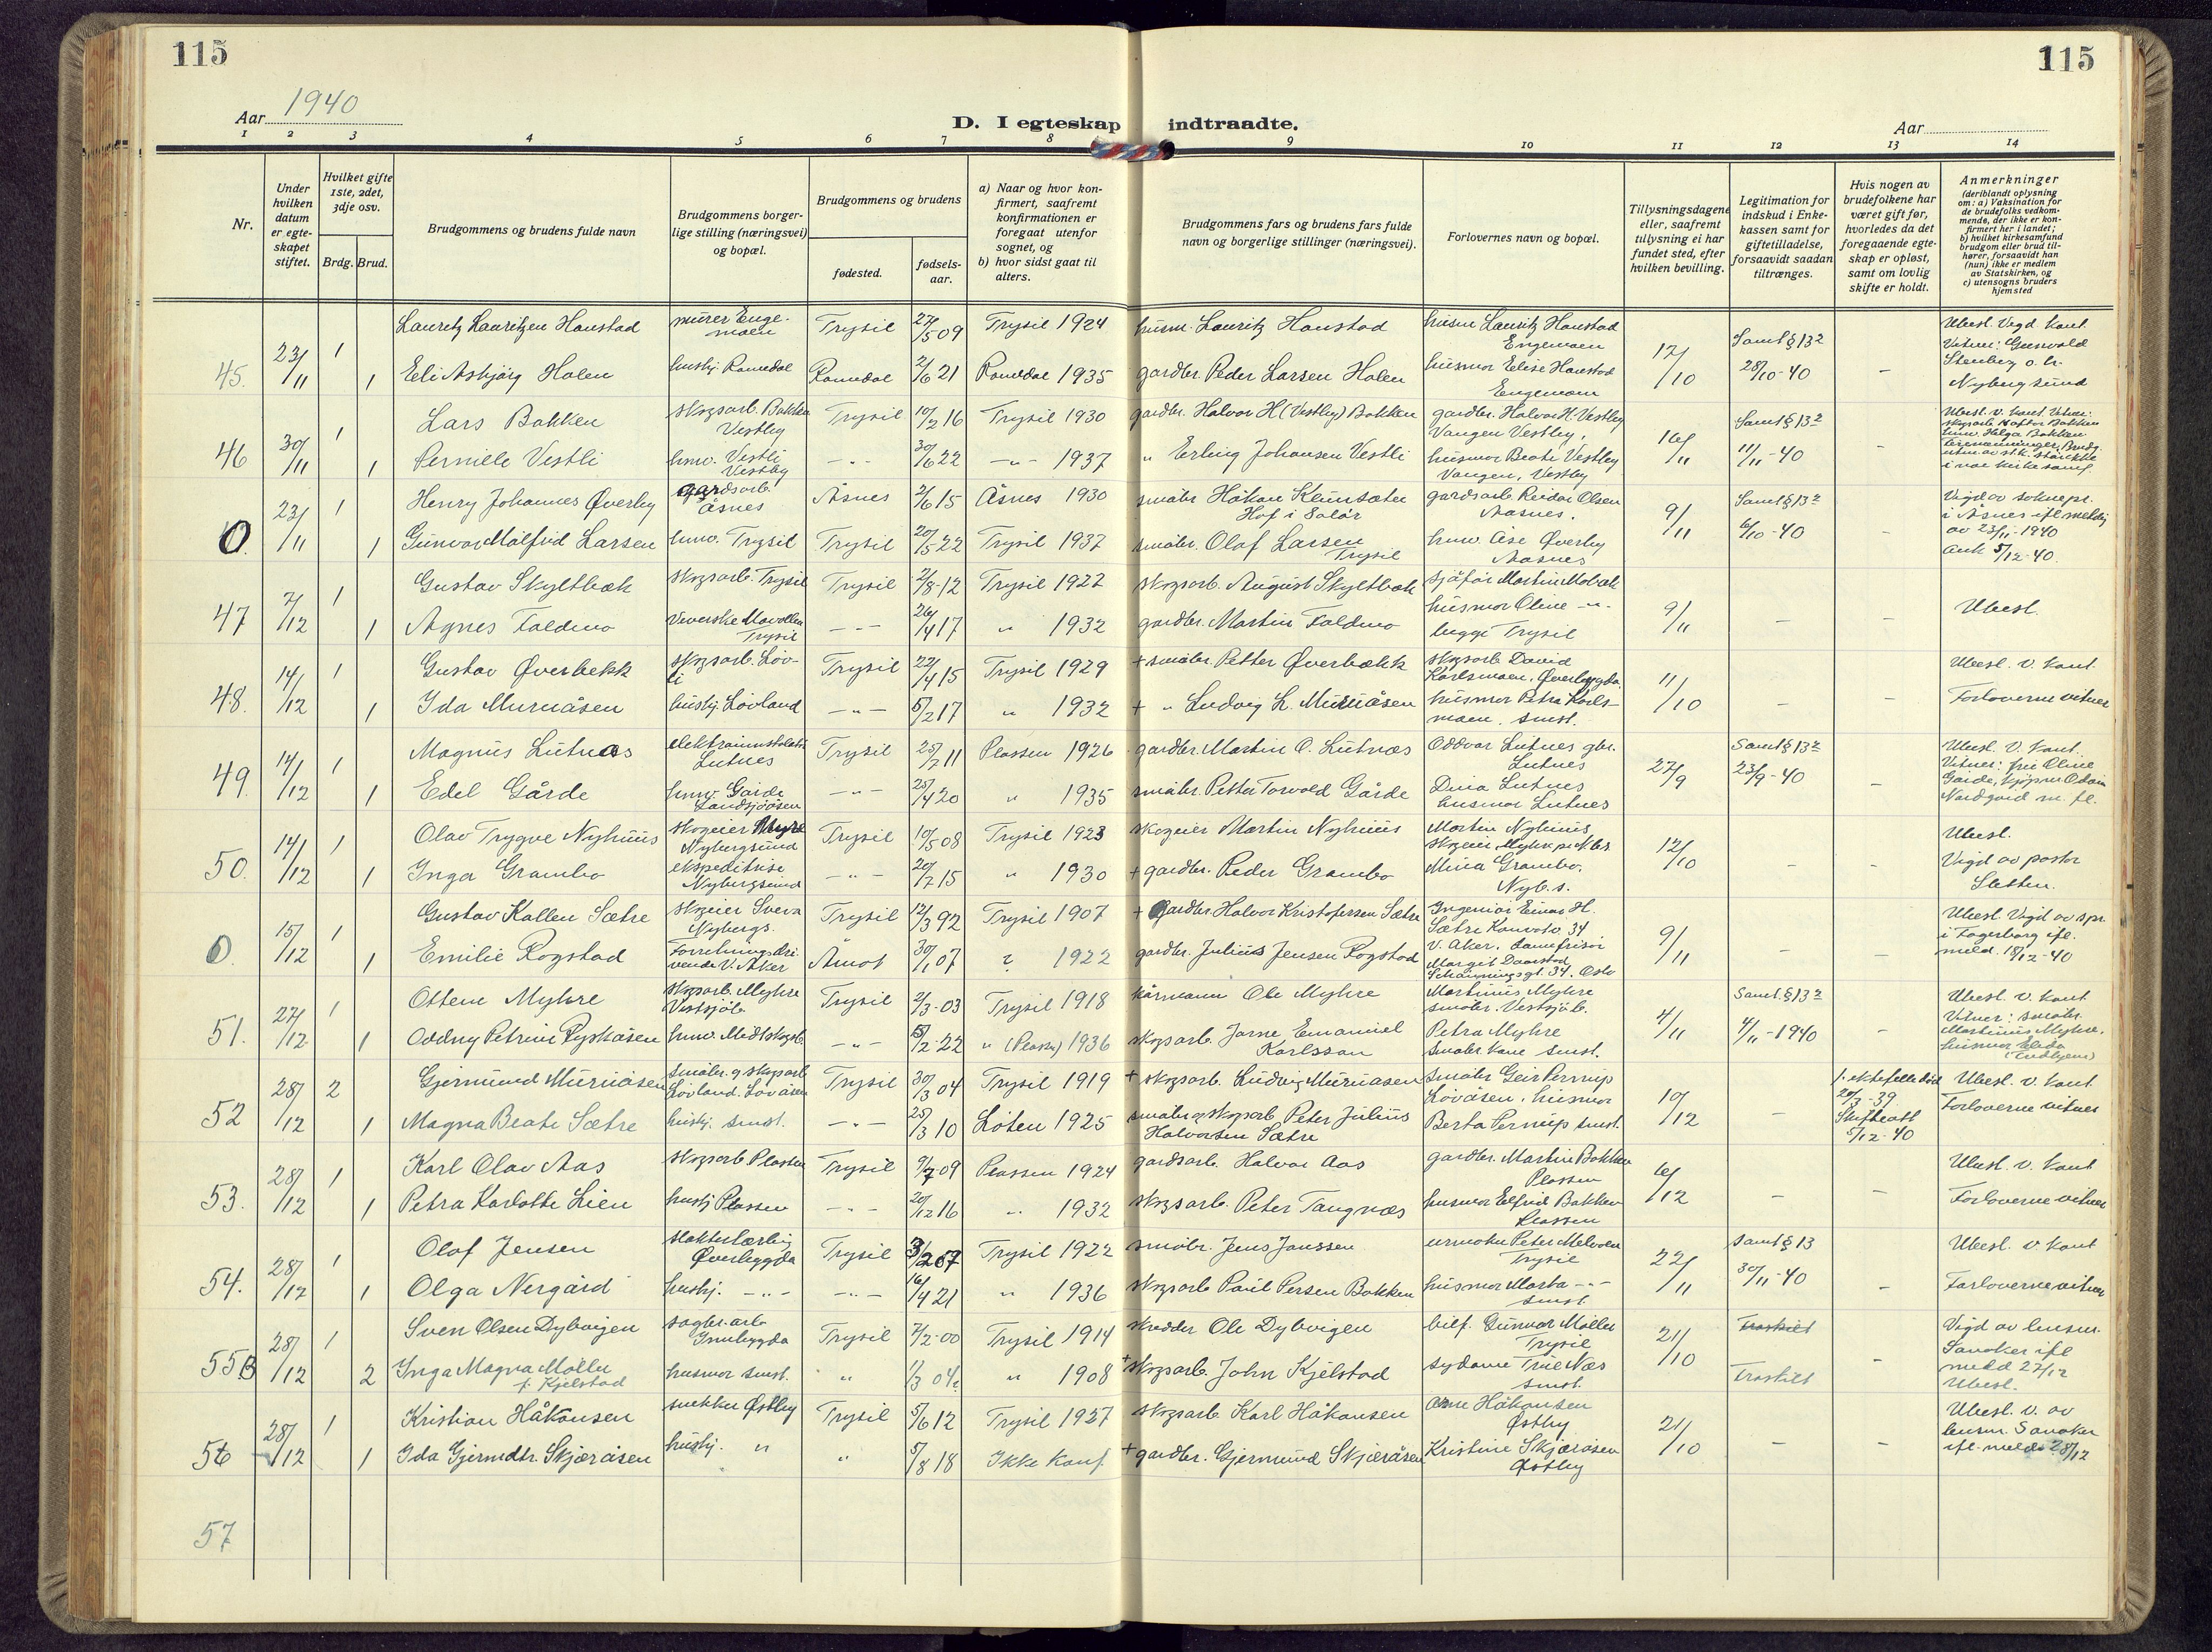 115
115
Aar 1940
D. I egteskap indtraadte.
Aar
1 2 3 4 5 6 7 8 9 10 11 12 13 14
Nr.
Under hvilken datum er egteskapet stiftet.
Hvilket gifte 1ste, 2det, 3dje osv.
Brdg. Brud.
Brudgommens og brudens fulde navn
Brudgommens borgerlige stilling (næringsvei) og bopæl.
Brudgommens og brudens
fødested.
fødselsaar.
a) Naar og hvor konfirmert, saafremt konfirmationen er foregaat utenfor sognet, og
b) hvor sidst gaat til alters.
Brudgommens fars og brudens fars fulde navn og borgerlige stillinger (næringsvei).
Forlovernes navn og bopæl.
Tillysningsdagene eller, saafremt tillysning ei har fundet sted, efter hvilken bevilling.
Legitimation for indskud i Enkekassen samt for giftetilladelse, forsaavidt saadan tiltrænges.
Hvis nogen av brudefolkene har været gift før, hvorledes da det foregaaende egteskap er opløst, samt om lovlig skifte er holdt.
Anmerkninger
(deriblandt oplysning om: a) Vaksination for de brudefolks vedkommende, der ikke er konfirmert her i landet;
b) hvilket kirkesamfund brudgom eller brud tilhører, forsaavidt han (hun) ikke er medlem av Statskirken, og
c) utensogns bruders hjemsted
45. 23/11 1 Lauritz Lauritzen Haustad murer Engemoen Trysil 27/5 09 Trysil 1924 husm. Lauritz Haustad husm Lauritz Haustad Engemoen 12/10 Samt § 13² 28/10-40 -
1 Eli Asbjørg Holen hushj. Romedal Romedal 2/6 21 Romedal 1935 gardbr. Peder Larsen Holen husmor Elise Haustad Engemoen
Ubesl. Vegd kont. Vitner: Gunvald Stenberg o. h. Nybergsund
46 30/11 1 Lars Bakken skogsarb. Bakken Vestby Trysil 10/2 16 Trysil 1930 gardbr. Halvor H (Vestby) Bakken gardbr. Halvor H. Vestby Vangen Vestby, 16/11 Samt § 13² 11/11-40
1 Pernille Vestli hmv. Vestli Vestby -"- 30/6 22 -"- 1937 " Erling Johansen Vestli husmor Beate Vestby Vangen, Vestby
0. 23/11 1 Henry Johannes Øverby gardsarb. Åsnes Åsnes 2/6 15 Åsnes 1930 småbr Håkon Hof i Solør gardsarb. Reidar Olsen Aasnes. 9/11 Samt § 13² 6/10-40 -
1 Gunvor Målfrid Larsen hmv. Trysil Trysil 20/5 22 Trysil 1937 småbr. Olaf Larsen Trysil hmv. Åse Øverby Aasnes
Vigd av soknepr. i Åsnes ifl. meldg av 23/11-1940 ank 5/12-40.
47 7/12 1 Gustav Skyltbæk skogsarb. Trysil Trysil 2/8-12 Trysil 1927 skogsarb. August Skyltbæk sjåfør Martin Mobæk 9/11 - - Ubesl.
1 Agnes Faldmo Veverske Trysil -"- 26/4 17 " 1932 gardbr. Martin Faldmo husmor Oline -"- begge Trysil
48. 14/12 1 Gustav Øverbekk skogsarb. Lövli Trysil 22/4 15 Trysil 1929 + småbr. Petter Øverbækk skogsarb David Karlsmoen, Øverbygda 11/10 - - Ubesl. v. kont.
1 Ida Muruåsen hushj. Lövland -"- 5/2 17 " 1932 + " Ludvig L. Muruåsen husmor Petra Karlsmoen. smst. Forloverne vitner
49. 14/12 1 Magnus Lutnæs Lutnes Trysil 25/7 11 Plassen 1926 gardbr. Martin O. Lutnæs Oddvar Lutnes gbr. Lutnes 27/9 Samt § 13² 23/9-40 -
1 Edel Gårde hmv. Gårde Landsjøåsen -"- 25/4 20 " 1935 småbr. Petter Torvald Gårde Dina Lutnes husmor Lutnes
Ubesl. V. kont. Vitner: fru Oline Garde, kjøpm Odin Nordgård m. fl.
50. 14/12 1 Olav Trygve Nyhuus skogeier Nybergsund Trysil 10/5 08 Trysil 1923 skogeier Martin Nyhuus Martin Nyhuus 12/10 - - Ubesl.
1 Inga Grambo ekspeditrise Nybergsund -"- 20/7 15 " 1930 + gardbr. Peder Grambo Mina Grambo, Nyb.s. Vigd av pastor Sletten.
0. 15/12 1 Gustav Kallen Sætre skogeier Nybergs. Trysil 12/3 92 Trysil 1907 + gardbr. Halvor Kristofersen Sætre Ingeniør Einar H. Sætre 34 V. Aker. 9/11 - -
1 Emilie Rogstad Forretningsdrivende V. Aker Åmot 30/1 07 ? 1922 gardbr. Julius Jensen Rogstad damefrisør Margit 34. Oslo
Ubesl. Vigd av spr. i Fagerborg ifl. meld. 18/12-40
51. 27/12 1 Ottem Myhre skogsarb. Myhre Vestsjöb. Trysil 2/3-03 Trysil 1918 kårmann Ole Myhre Martinius Myhre småbr. Vestsjöb. 4/11 Samt. § 13² 4/11-1940 -
1 Oddny Petrine Ryskåsen hmv. Midtskogb. -"- 5/2-22 " (Plassen) 1936 skogsarb. Jarne Emanuel Karlsson Petra Myhre småbr. kone smst.
Ubesl. v. kont Vitner: småbr. Martinius Myhre, husmor
52 28/12 2 Gjermund Muruåsen småbr. og skogsarb Lövland. Lövåsen Trysil 30/3 04 Trysil 1919 + skogsarb. Ludvig Muruåsen småbr Geir Lövåsen, husmor 10/12 - 1. ektefelle død 20/3-39. Skifteatt 5/12-40 Ubesl. v. kont
1 Magna Beate Sætre hushj. smst. -"- 25/3 10 Löten 1925 småbr og skogsarb Peter Julius Halvorsen Sætre Berta smst. Forloverne vitner
53. 28/12 1 Karl Olav Aas skogsarb Plassen Trysil 9/7 09 Plassen 1924 gardsarb. Halvor Aas gardbr. Martin Bakken Plassen 6/12 - - Ubesl. v. kont
1 Petra Karlotte Lien hushj Plassen -"- 20/12 16 " 1932 skogsarb. Peter Tangnæs husmor Elfrid Bakken Plassen Forloverne vitner
54. 28/12 1 Olaf Jensen slakterlærling Øverbygda Trysil Trysil 1922 småbr. Jens Janssen urmaker Peter Trysil 22/11 samt § 13 30/11-40 - Ubesl. v kont
1 Olga Nergård hushj. -"- -"- 16/4 21 " 1936 skogsarb Paul Persen Bakken husmor Marta -"- smst. Forloverne vitner
55 28/12 1 Sven Olsen Dybvigen sagbr. arb Innbygda Trysil 7/2-00 Trysil 1914 skredder Ole Dybvigen Gunvor Møller Trysil 21/10 Fraskilt -
2 Inga Magna Møller f. Kjelstad husmor smst. " 1/3 04 " 1908 + skogsarb. John Kjelstad sydame Trine Næs smst. Fraskilt
Vigd av lensm. Sanaker ifl meld 27/12 Ubesl.
56 28/12 1 Kristian Håkonsen snekker Østby Trysil 5/6 12 Trysil 1927 skogsarb Karl Håkonsen Arne Håkonsen Østby 21/10 - -
1 Ida Gjermdtr. Skjæråsen hushj. " " 5/8 18 Ikke konf. + gardbr. Gjermund Skjæråsen Kristine Skjæråsen Østby
Ubesl. v. av lensm. Sanaker ifl. meld. 28/12
57